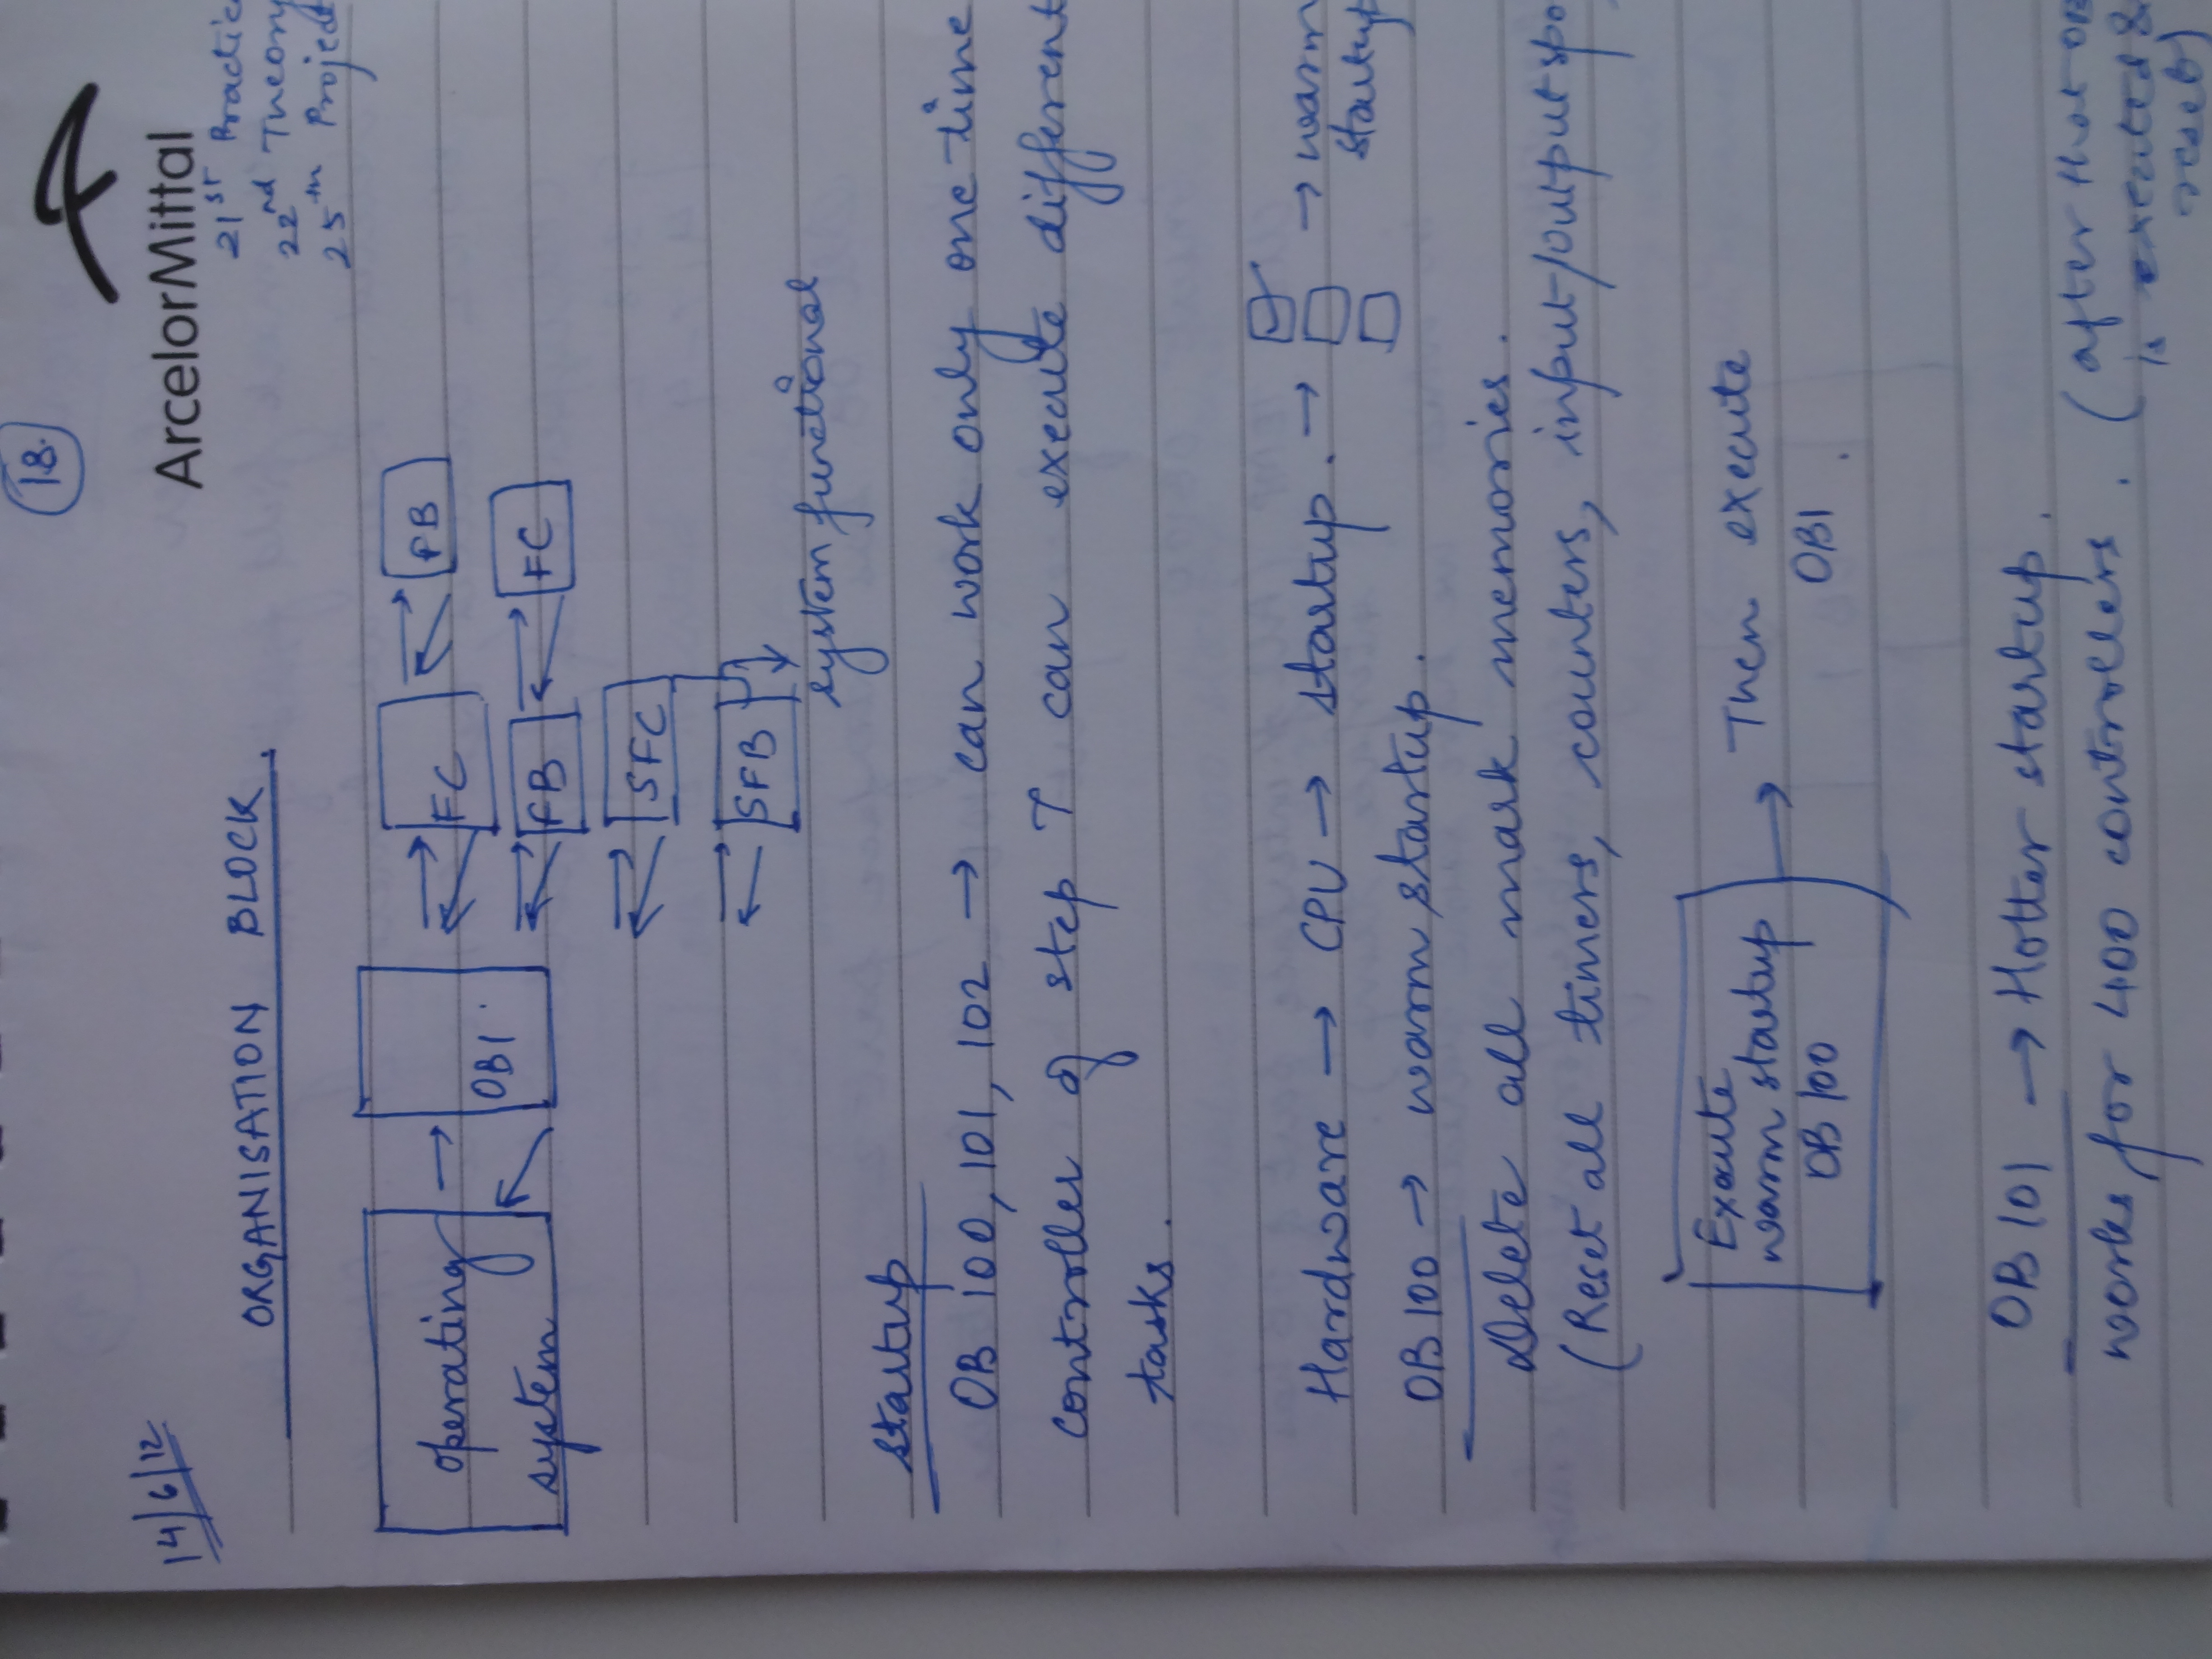 18.
14/6/12
ArcelorMittal
21st Practic
22nd Theory
25th Project
ORGANISATION BLOCK.
operating
system
OB1.
FC
FB
FB
FC
SFC
SFB
system functional
Startup
OB 100, 101, 102 → can work only one time
controller of step 7 can execute different
tasks.
Hardware → CPU → startup. → → warm
startup
OB100 → warm startup.
Delete all mark memories.
(Reset all timers, counters, input/output
Execute
warm startup
OB100
→ Then execute
OB1.
OB 101 → Hotter startup.
works for 400 controllers. (after that OB
is executed &
reset)